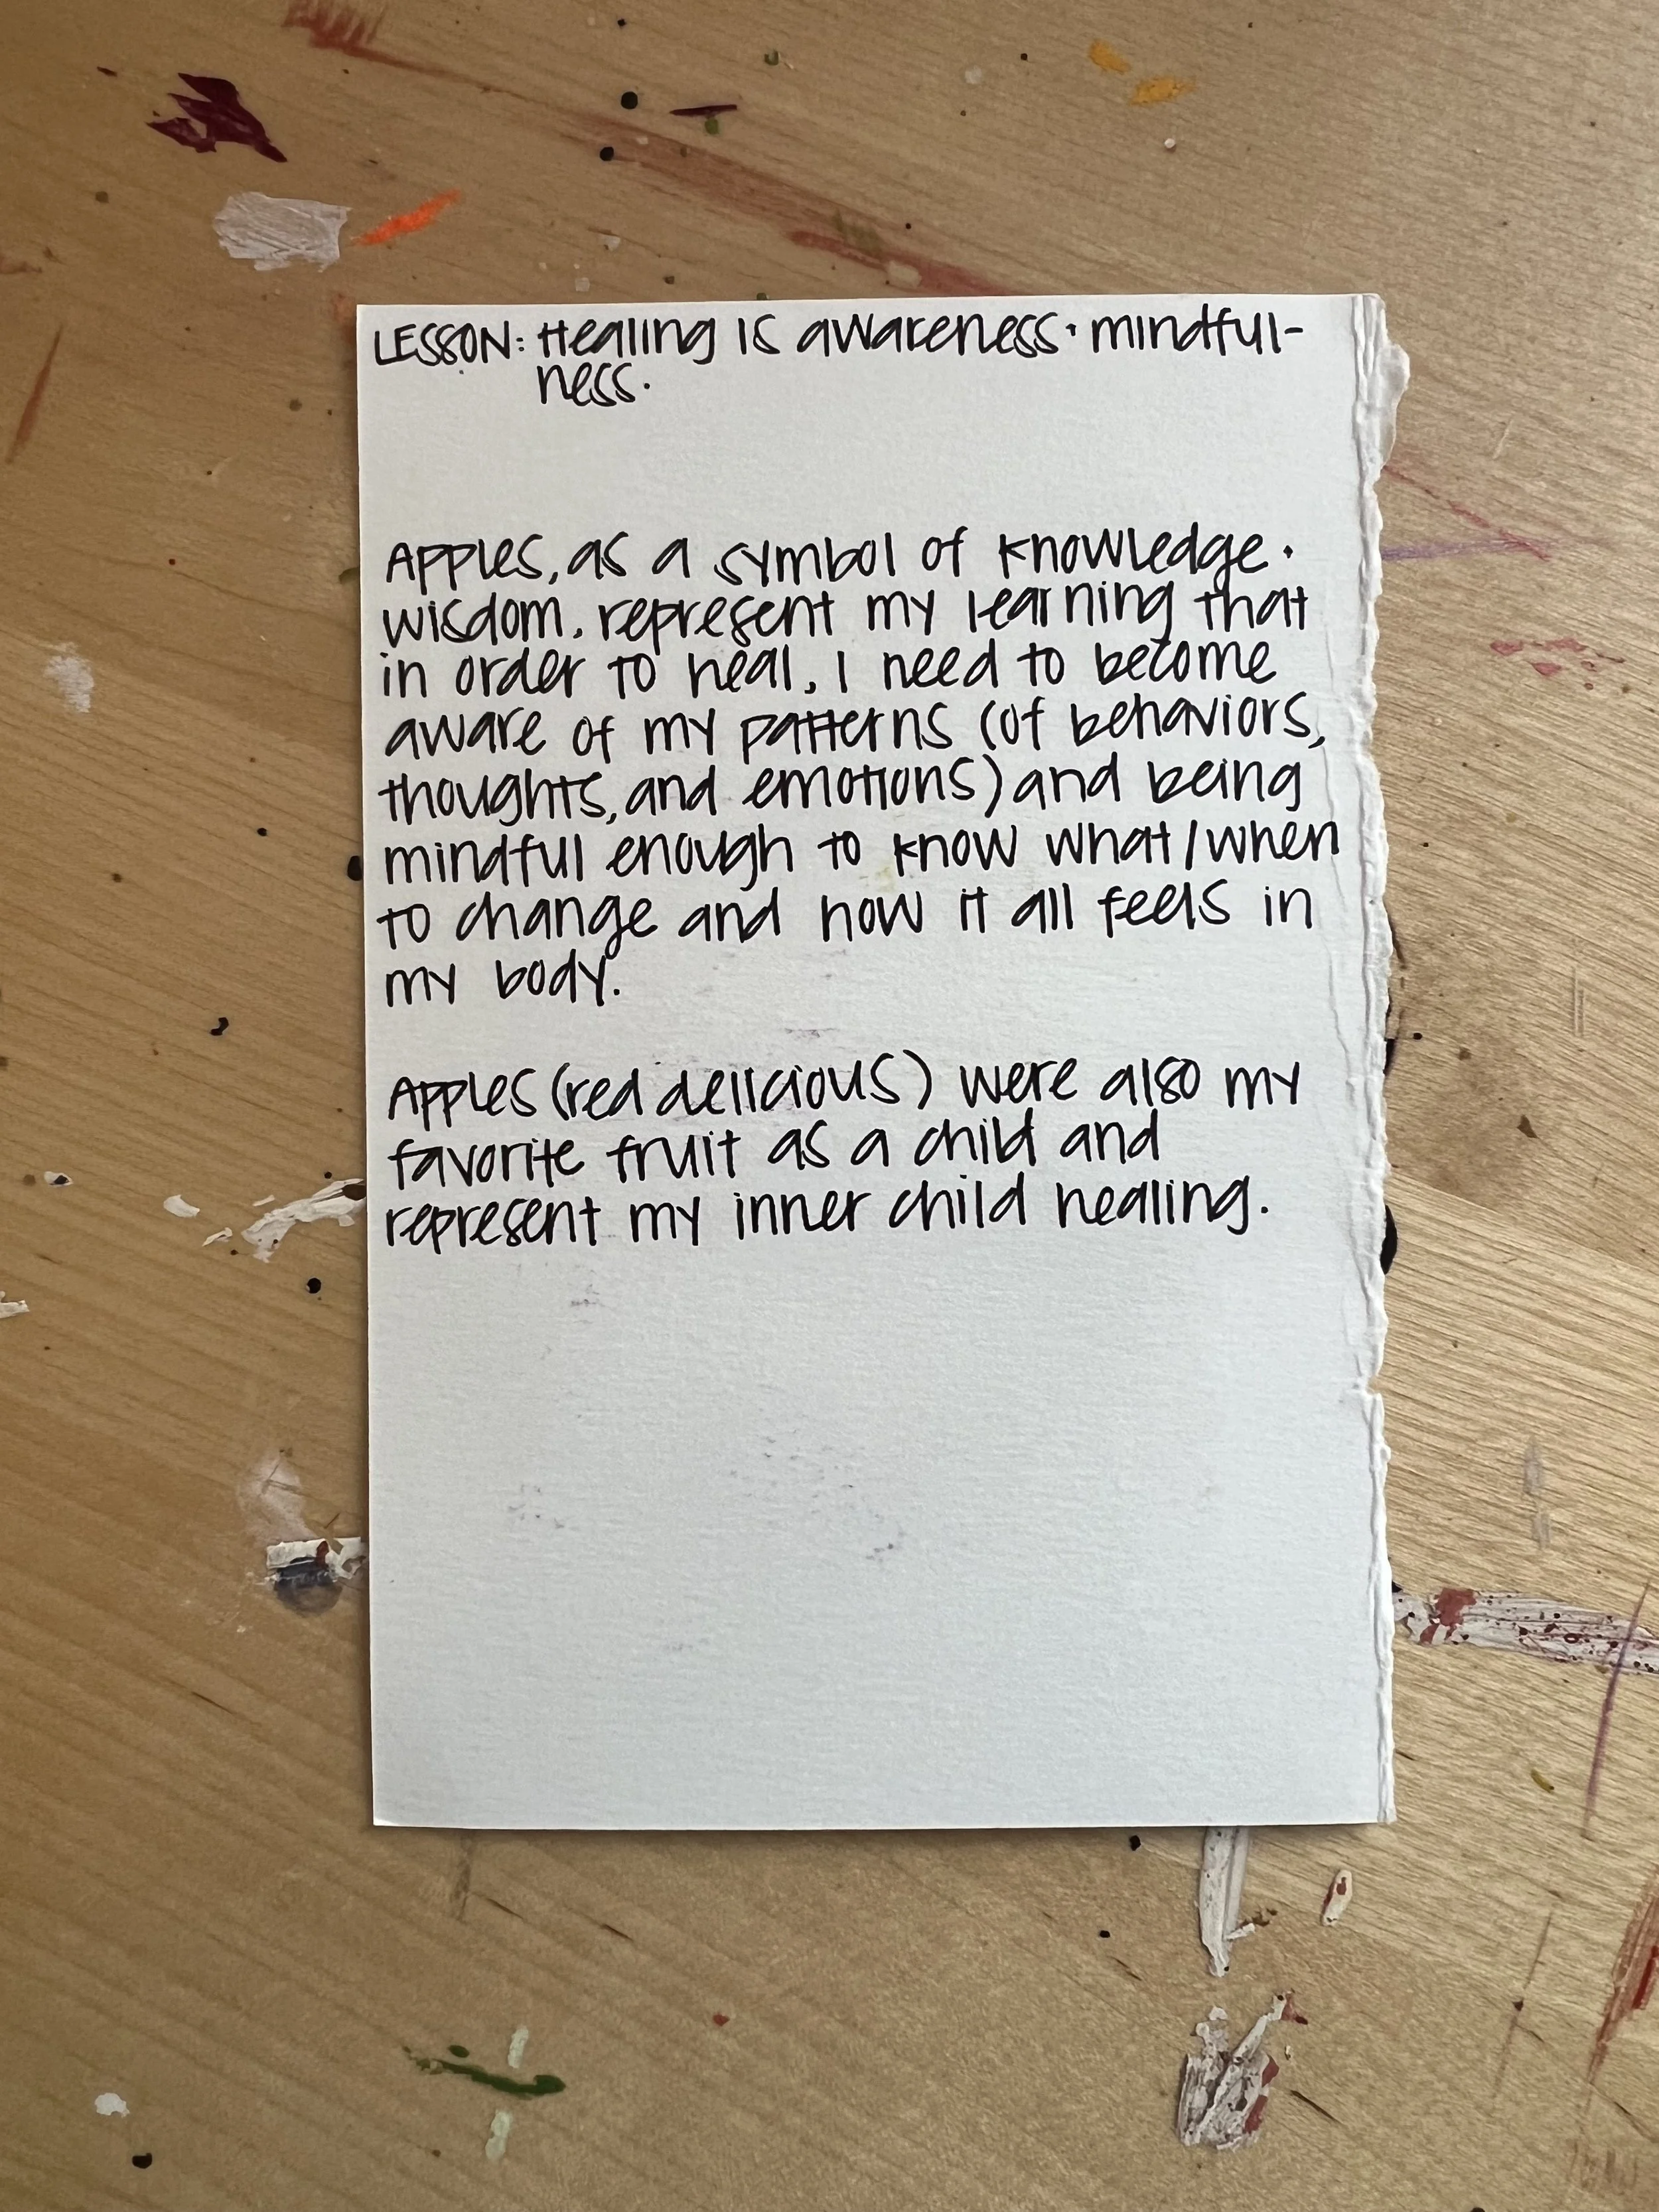 LESSON: Healing is awareness + mindful-
ness.
Apples, as a symbol of knowledge +
wisdom, represent my learning that
in order to heal, I need to become
aware of my patterns (of behaviors,
thoughts, and emotions) and being
mindful enough to know what/when
to change and how it all feels in
my body.
Apples (red delicious) were also my
favorite fruit as a child and
represent my inner child healing.